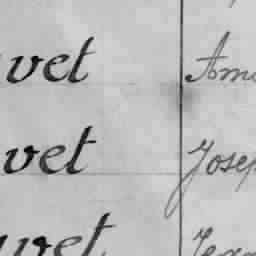 vet Ama
vet Josep
vet